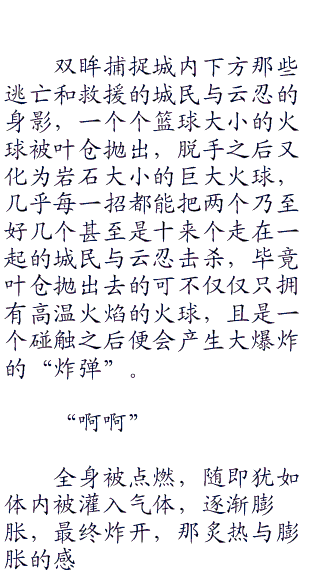 双眸捕捉城内下方那些
逃亡和救援的城民与云忍的
身影，一个个篮球大小的火
球被叶仓抛出，脱手之后又
化为岩石大小的巨大火球，
几乎每一招都能把两个乃至
好几个甚至是十来个走在一
起的城民与云忍击杀，毕竟
叶仓抛出去的可不仅仅只拥
有高温火焰的火球，且是一
个碰触之后便会产生大爆炸
的“炸弹”。
“啊啊”
全身被点燃，随即犹如
体内被灌入气体，逐渐膨
胀，最终炸开，那炙热与膨
胀的感